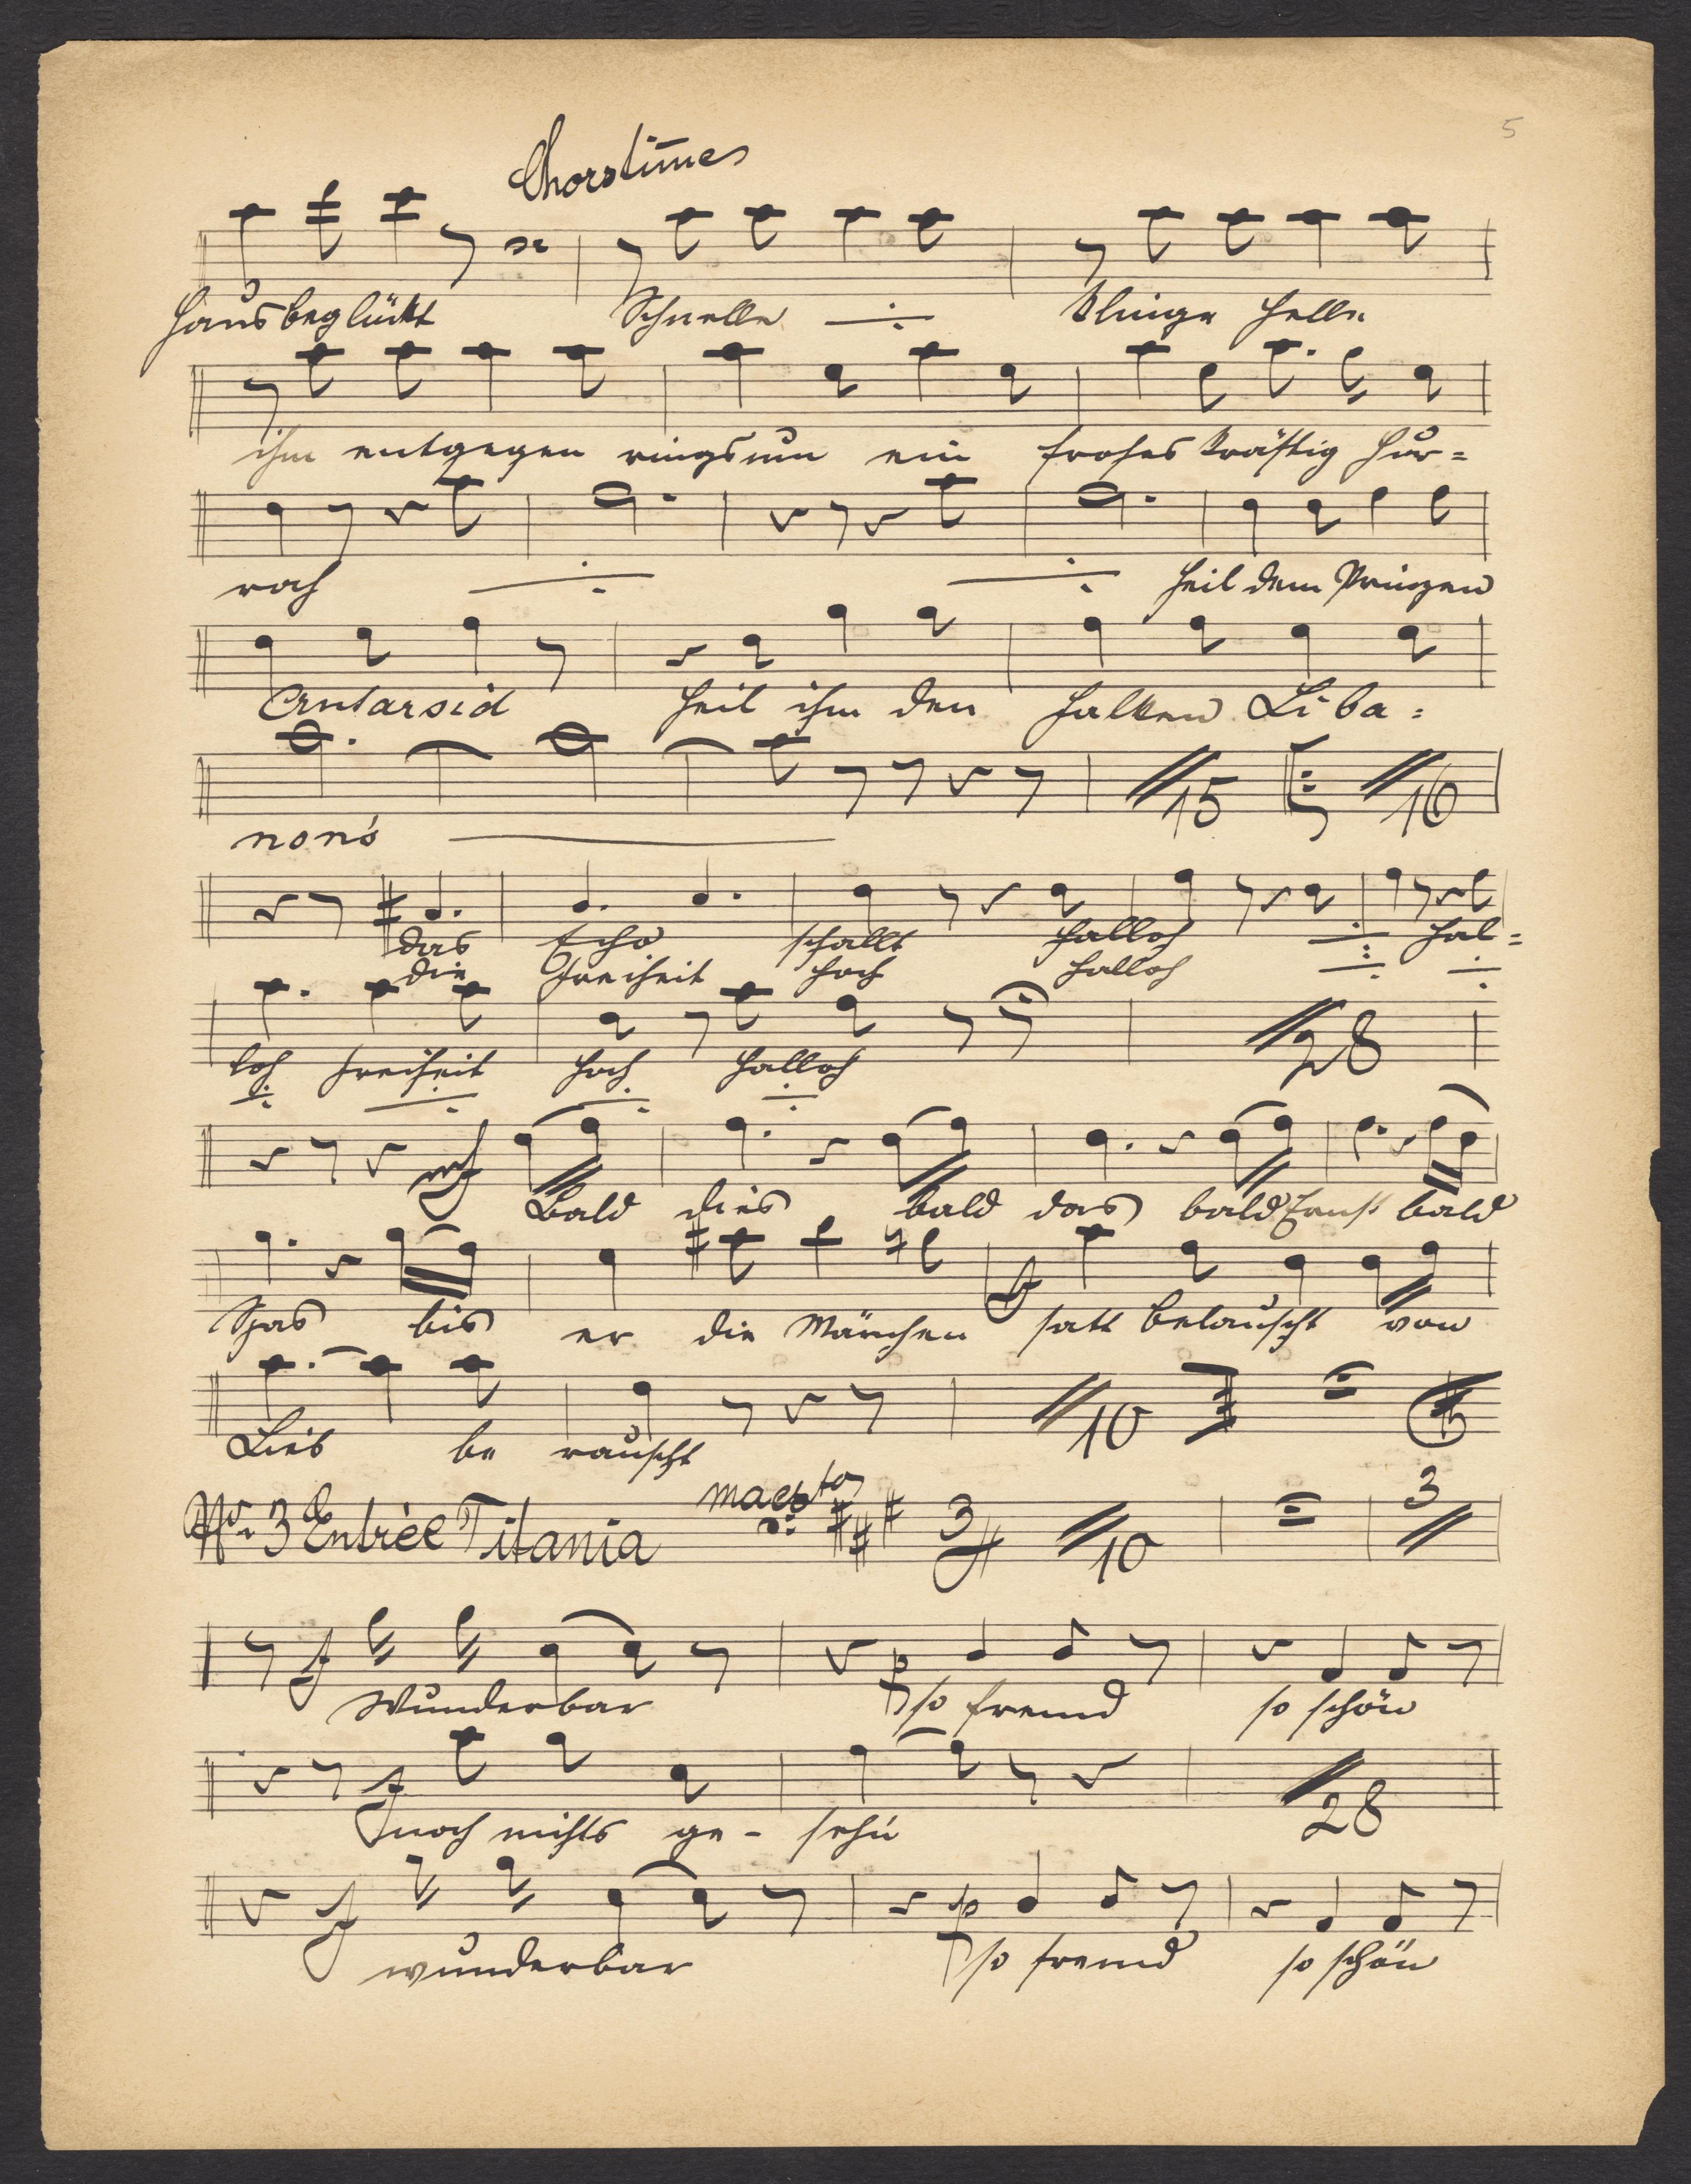 5
Chorstimēs
Haus beglückt Schnelle Klinge Helle
ihm entgegen ringsum ein frohes kräftig Hur=
roh Heil dem Prinzen
Centarsid Heil ihm den Falken Liba=
non's
15 16
das Echo schallt Halloh Hal=
die Freiheit hoch Halloh
loh Freiheit hoch Halloh
28
mf
Bald dies bald das bald Ernst bald
f
Spas bis er die Märchen satt belauscht von
10
Lieb be rauscht
No. 3 Entrèe Titania maesto 3/4 10 3
f p
Wunderbar so fremd so schön
f 28
noch nichts ge- seh'n
f p
wunderbar so fremd so schön